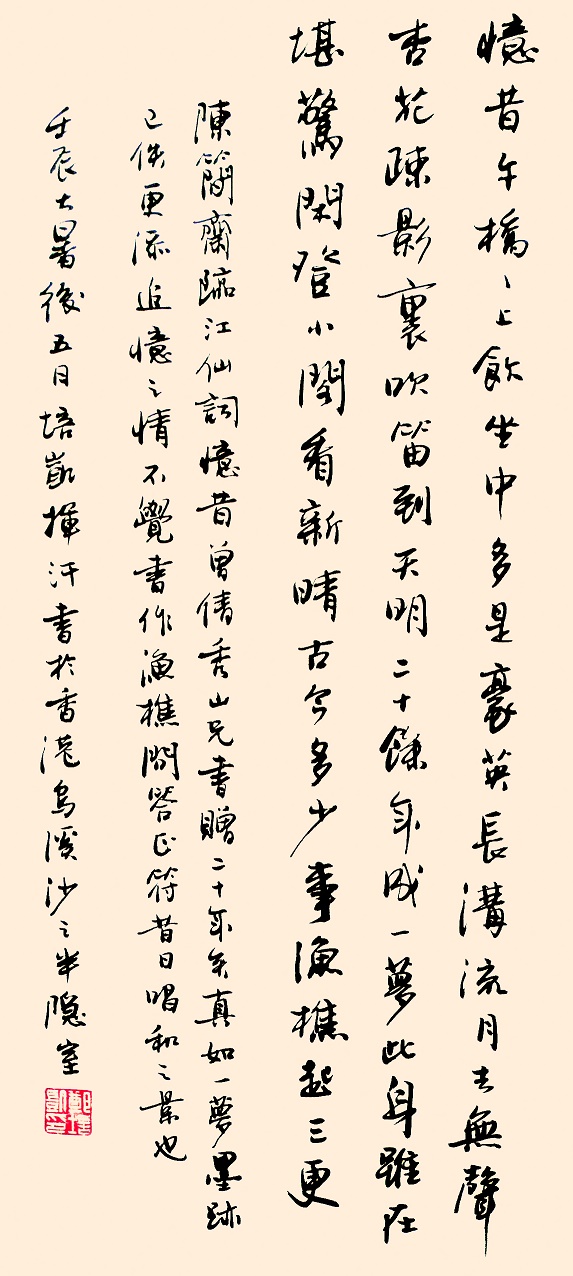 憶昔午橋〻上飲坐中多是豪英長溝流月去無聲
杏花疎影裏吹笛到天明二十餘年成一夢此身雖在
堪驚閑登小閣看新晴古今多少事漁樵起三更
陳簡齋臨江仙詞憶昔曾倩秀山兄書贈二十年矣真如一夢墨跡
已佚更添追憶之情不覺書作漁樵閒答正符昔日唱和之景也
壬辰大暑後五日培凱揮汗書於香港烏溪沙之半隱室
鄭培凱印